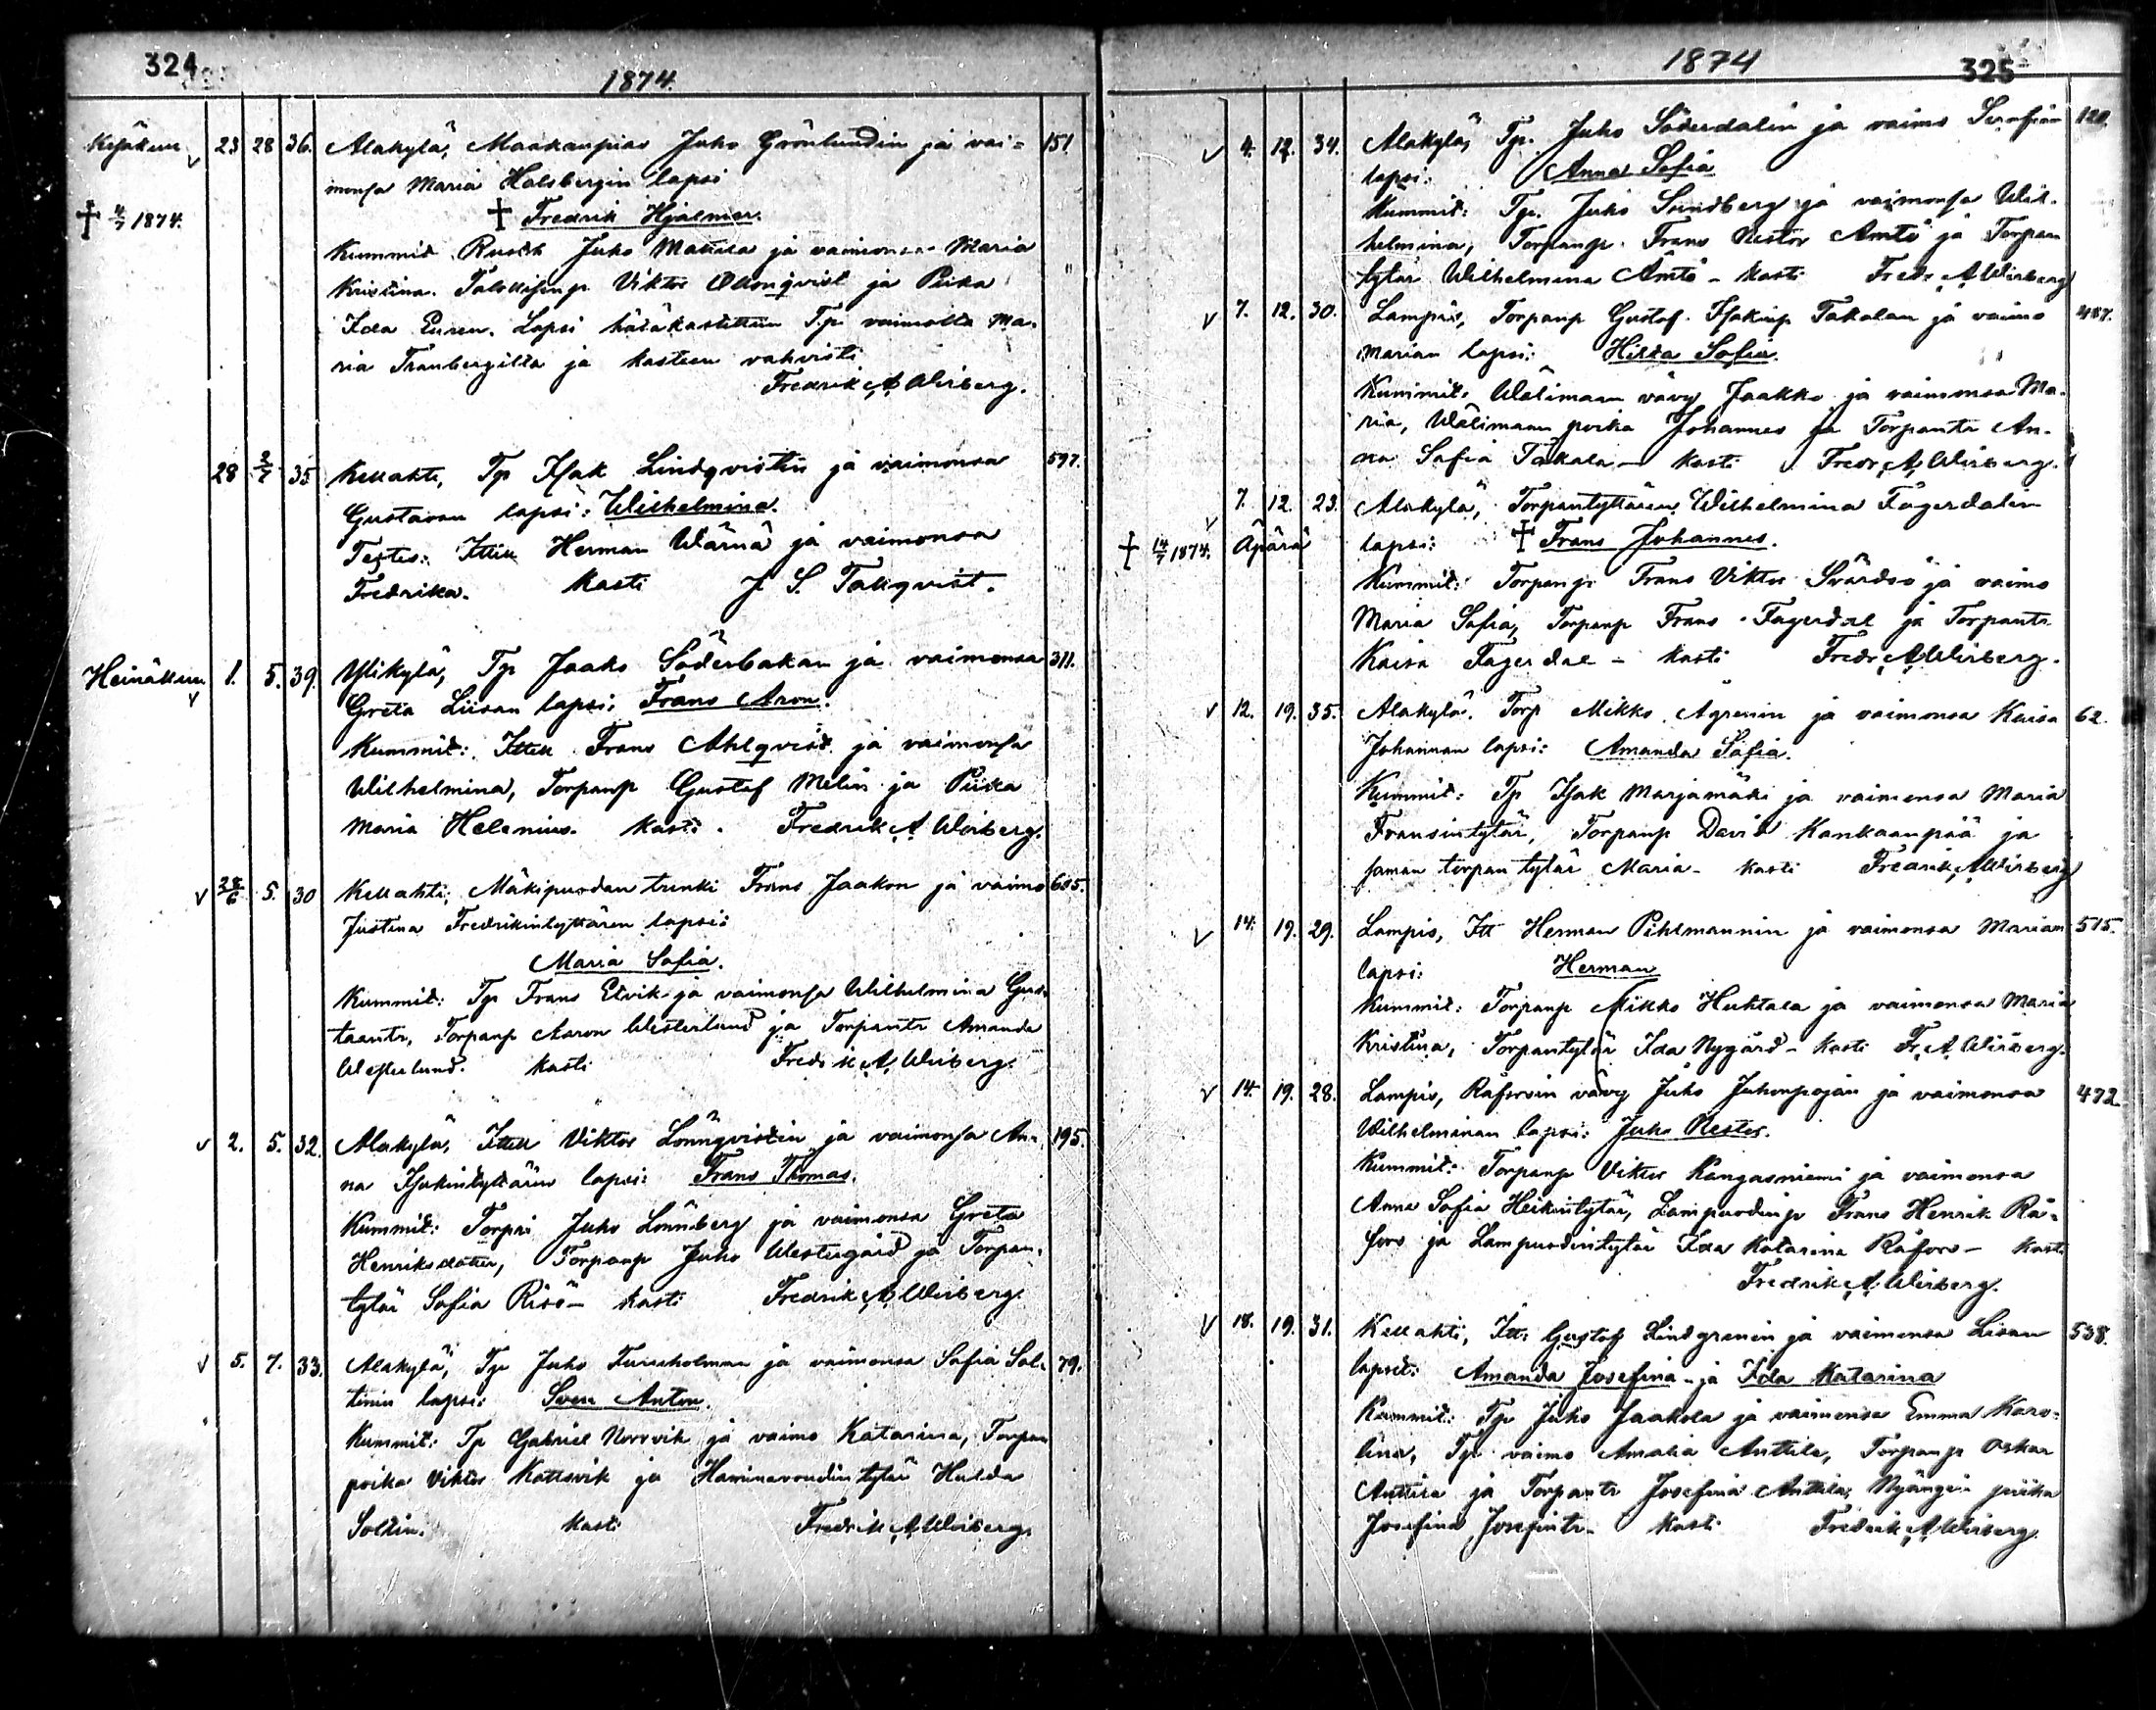 324
1874.
Kesäkuu 23 28 36. Alakylä, Maakaupias Juho Grönlundin ja vai= 151.
monsa Maria Halsbergin lapsi
† 4/7 1874. † Fredrik Hjalmar.
Kummid Rusth Juho Mattila ja vaimonsa Maria
Kristina. Viktor ja Piika
Ida Lapsi hätäkastettiin Tp vaimolta Ma-
ria Tranbergilta ja kasteen vahvisti
Fredrik A. Wirberg.
28 2/7 35 Kellahti, Tp Isak Lindqvistin ja vaimonsa 597.
Gustavan lapsi: Wilhelmina.
Testes: Ittell Herman Wärnä ja vaimonsa
Fredrika. Kasti J. S. Tallqvist.
Heinäkuu 1. 5. 39. Ylikylä, Tp Jaako Söderbakan ja vaimonsa 311.
Greta Liisan lapsi: Frans Aron.
Kummid: Ittell Frans Ahlqvist ja vaimonsa
Wilhelmina, Torpanp Gustaf Melin ja Piika
Maria Helenius. Kasti. Fredrik A. Wirberg.
28/6 5. 30 Kellahti, Mäkipuodan trenki Frans Jaakon ja vaimo 605.
Justina Fredrikintyttären lapsi:
Maria Sofia.
Kummid: Tp Frans Elvik ja vaimonsa Wilhelmina Gus-
taantr, Torpanp Aaron Westerlund ja Torpantr Amanda
Westerlund. Kasti Fredrik A. Wirberg.
2. 5. 32. Alakylä, Ittell Viktor Lönnqvistin ja vaimonsa An- 195.
na Isakintyttären lapsi: Frans Thomas.
Kummid: Torpari Juho Lönnberg ja vaimonsa Greta
Henriksdotter, Torpanp Juho Westergård ja Torpan-
tytär Sofia Risö – Kasti Fredrik A. Wirberg.
5. 7. 33. Alakylä, Tp Juho Furuholman ja vaimonsa Sofia Sol- 79.
tinin lapsi: Sven Anton.
Kummid: Tp Gabriel Norrvik ja vaimo Katarina, Torpan
poika Viktor Kattsvik ja Haminavoudin tytär Hulda
Soltin. Kasti Fredrik A. Wirberg.
1874
325
4. 12. 34. Alakylä, Tp. Juho Söderdalin ja vaimo Serafian 120.
lapsi: Anna Sofia
Kummid: Tp. Juho Sundberg ja vaimonsa Wil-
helmina, Torpanp. Frans Nestor Amtö ja Torpan
tytär Wilhelmina Amtö – Kasti Fredr. A. Wirberg
7. 12. 30. Lampis, Torpanp Gustaf Isakinp Takalan ja vaimo 487.
Marian lapsi: Hilda Sofia.
Kummid: Wälimaan vävy Jaakko ja vaimonsa Ma-
ria, Wälimaan poika Johannes ja Torpantr An-
na Sofia Takala – Kasti Fredr. A. Wirberg.
7. 12. 23. Alakylä, Torpantyttären Wilhelmina Fagerdalin
† 14/7 1874. Äpärä lapsi: † Frans Johannes.
Kummid: Torpanp Frans Viktor Svärdsö ja vaimo
Maria Sofia, Torpanp Frans Fagerdal ja Torpantr
Kaisa Fagerdal – Kasti Fredr A. Wirberg.
12. 19. 35. Alakylä. Torp Mikko Ågrenin ja vaimonsa Kaisa 62.
Johannan lapsi: Amanda Sofia.
Kummid: Tp Isak Marjamäki ja vaimonsa Maria
Fransintytär, Torpanp David Kankaanpää ja
saman torpan tytär Maria – Kasti Fredrik A. Wirberg
14. 19. 29. Lampis, Itt Herman Pihlmannin ja vaimonsa Marian 515.
lapsi: Herman
Kummid: Torpanp Mikko Huhtala ja vaimonsa Maria
Kristina, Torpantytär Ida Nygård – Kasti Fr. A. Wirberg.
14. 19. 28. Lampis, Råforsin vävy Juho Juhonpojan ja vaimonsa 472
Wilhelminan lapsi: Juho Nestor.
Kummid: Torpanp Viktor Kangasniemi ja vaimonsa
Anna Sofia Heikintytär, Lampuodinp Frans Henrik Rå-
fors ja Lampuodintytär Ida Katarina Råfors – Kasti
Fredrik A. Wirberg.
18. 19. 31. Kellahti, Itt. Gustaf Lindgrenin ja vaimonsa Lisan 538.
lapset: Amanda Josefina ja Ida Katarina
Kummid: Tp Juho Jaakola ja vaimonsa Emma Karo-
lina, Tp vaimo Amalia Anttila, Torpanp Oskar
Anttila ja Torpantr Josefina Anttila, piika
Josefina Josefintr – Kasti Fredrik A. Wirberg.